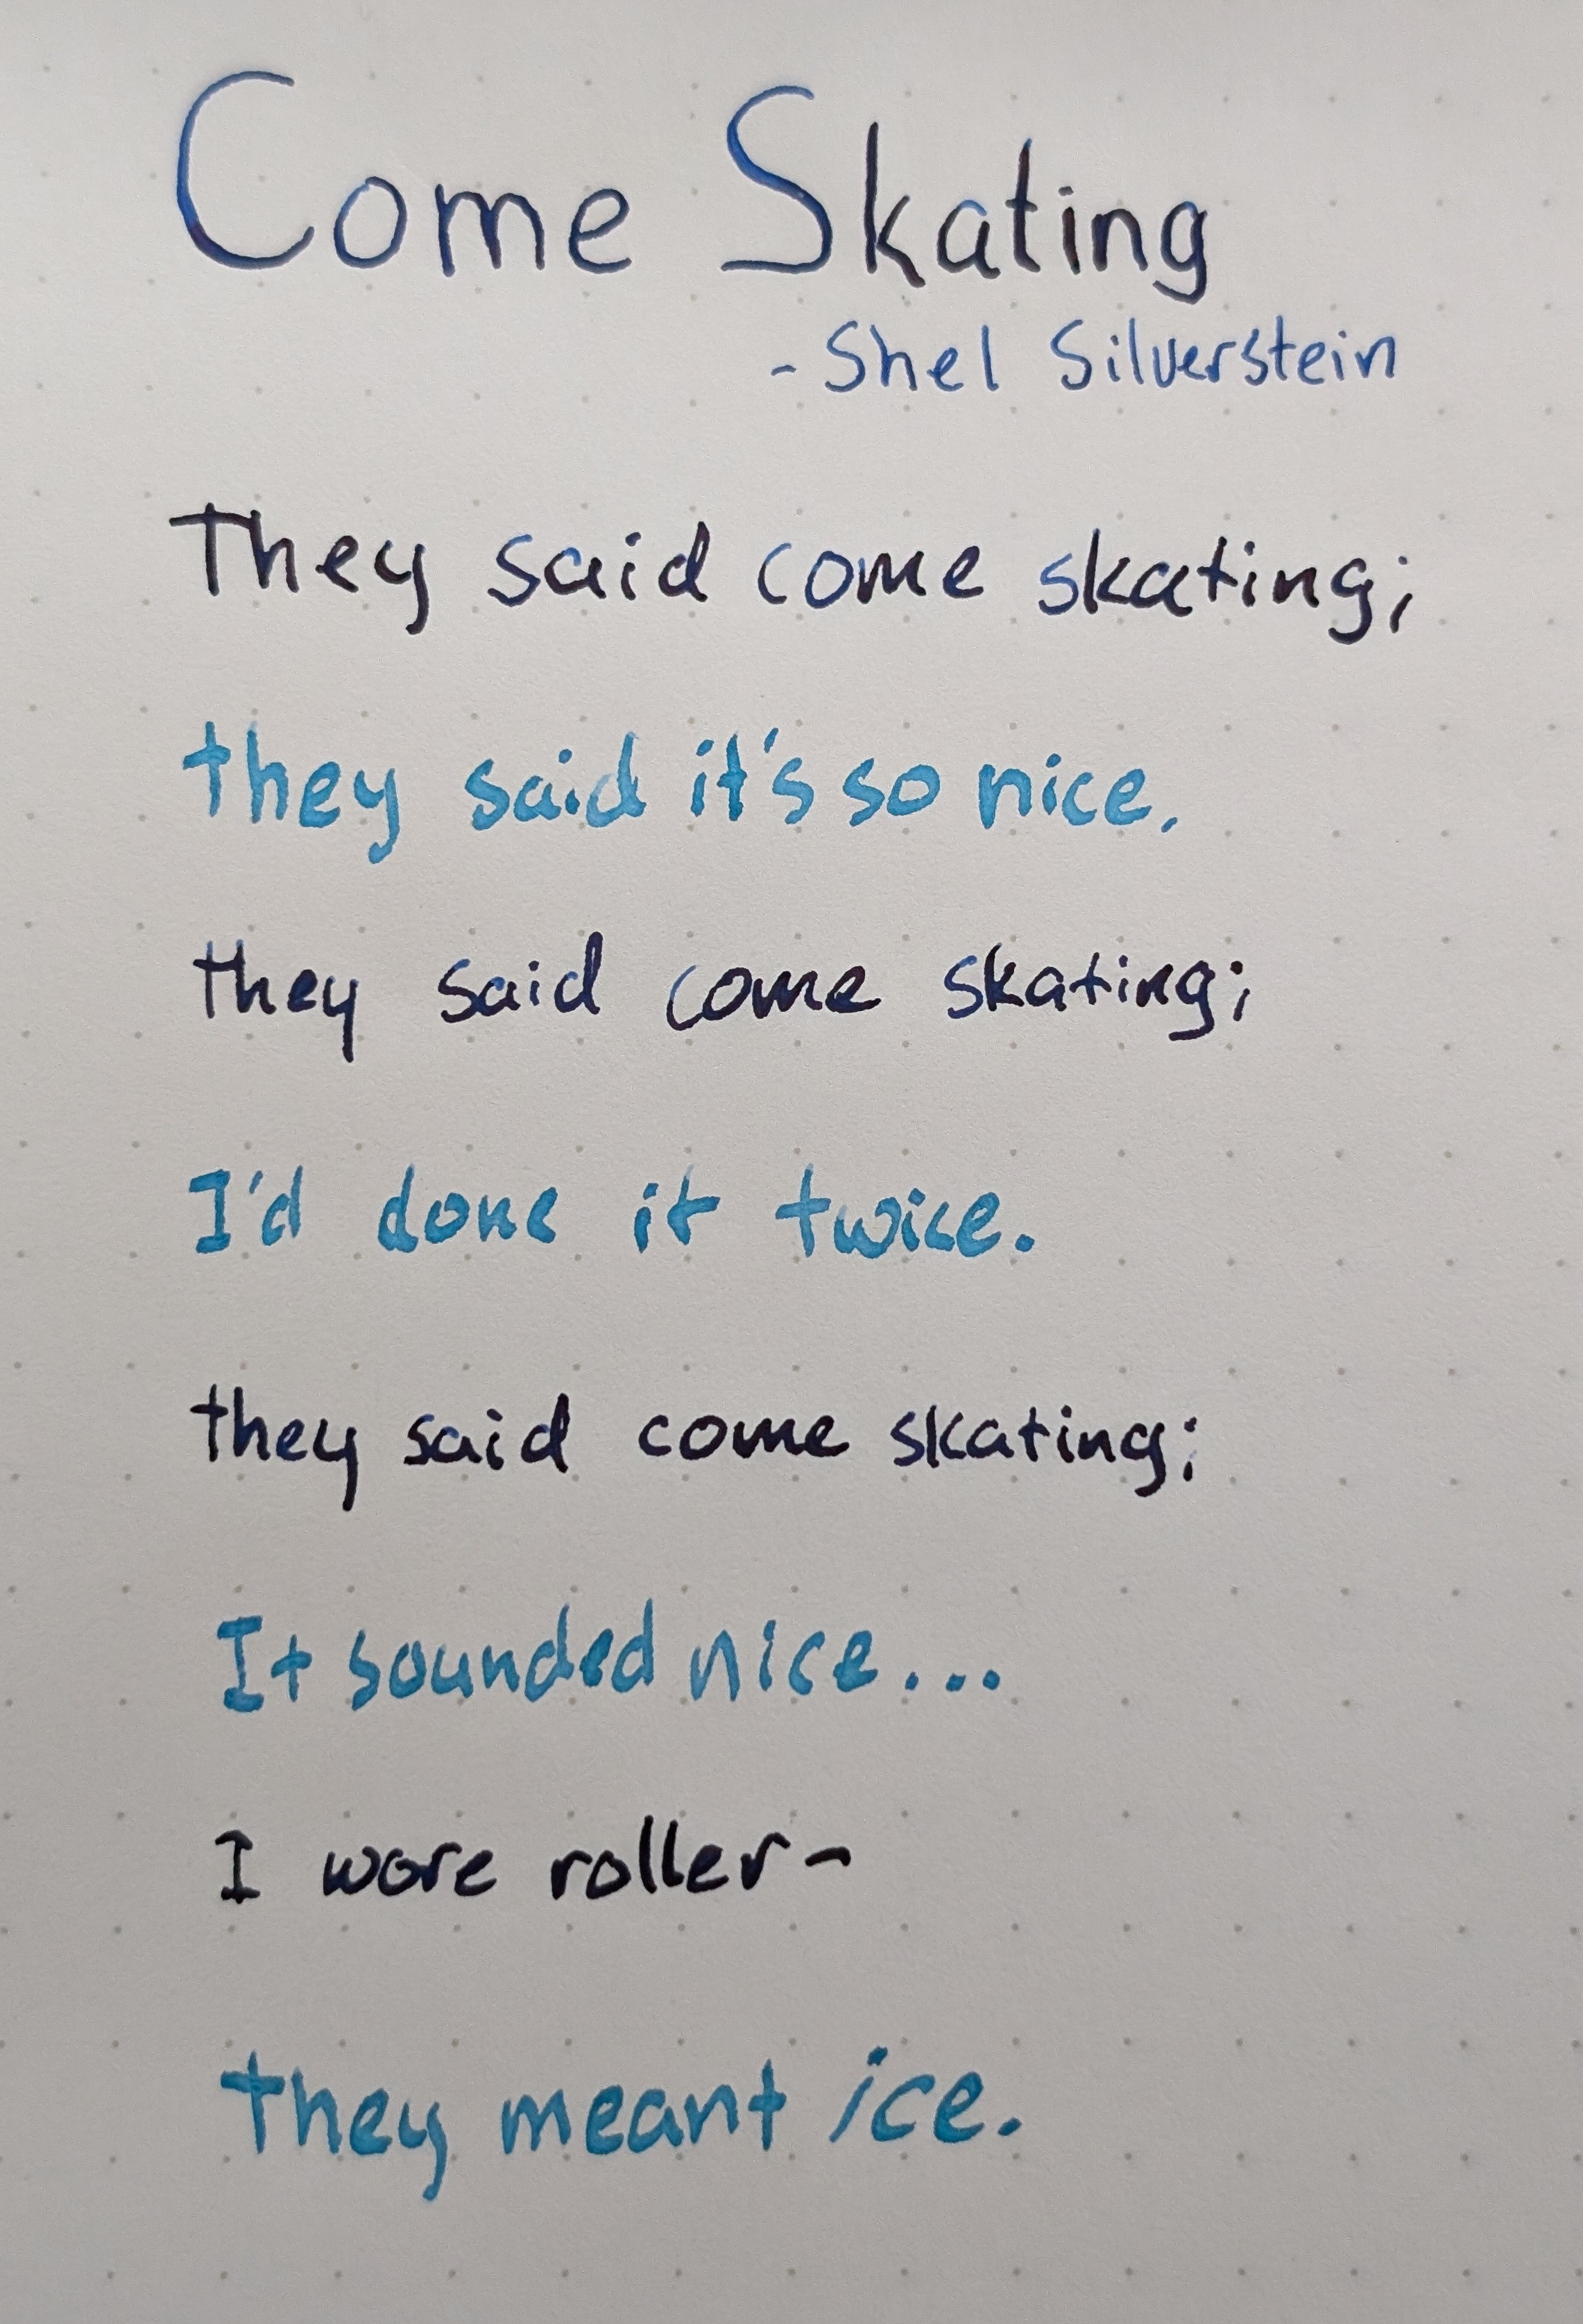 Come Skating
- Shel Silverstein
They said come skating;
they said it's so nice.
they said come skating;
I'd done it twice.
they said come skating;
It sounded nice...
I wore roller-
they meant ice.